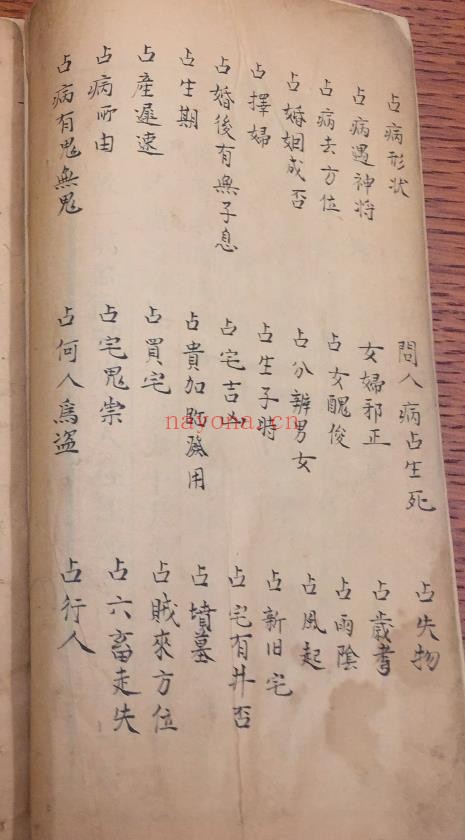 占病形状
占病遇神将
占病去方位
占婚姻成否
占擇婦
占婚後有無子息
占生期
占產遲速
占病所由
占病有鬼無鬼
問人病占生死
女婦邪正
占女醜俊
占分辨男女
占生子時
占宅吉凶
占貴加發用
占買宅
占宅鬼祟
占何人爲盗
占失物
占歲
占雨陰
占風起
占新旧宅
占宅有井否
占墳墓
占賊來方位
占六畜走失
占行人
nayona.cn